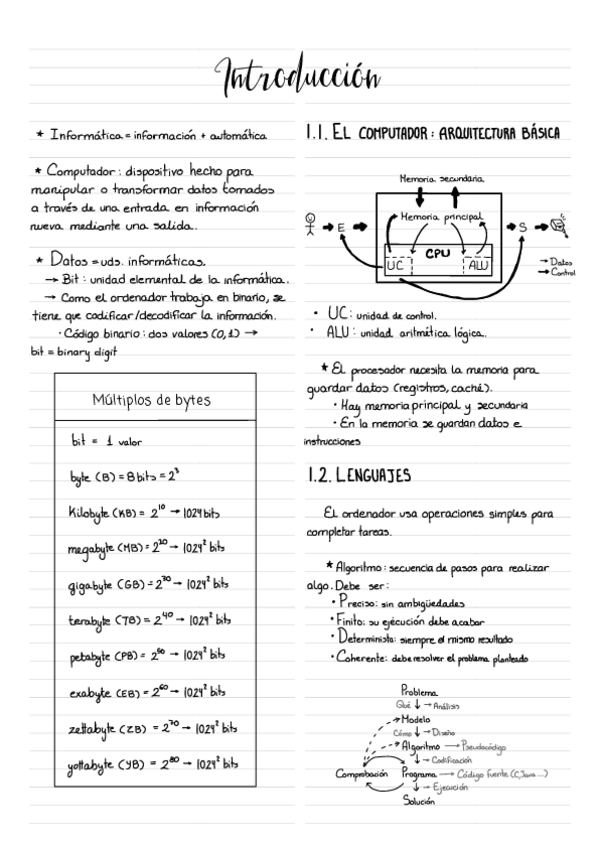 Introducción
* Informática = información + automática
* Computador: dispositivo hecho para
manipular o transformar datos tomados
a través de una entrada en información
nueva mediante una salida..
* Datos = uds. informáticas.
→ Bit: unidad elemental de la informática.
→ Como el ordenador trabaja en binario, se
tiene que codificar/decodificar la información.
· Código binario: dos valores (0,1) →
bit = binary digit
Múltiplos de bytes
bit = 1 valor
byte (B) = 8 bits = 2³
Kilobyte (KB) = 2¹⁰ → 1024 bits
megabyte (MB) = 2²⁰ → 1024² bits
gigabyte (GB) = 2³⁰ → 1024² bits
terabyte (TB) = 2⁴⁰ → 1024² bits
petabyte (PB) = 2⁵⁰ → 1024² bits
exabyte (EB) = 2⁶⁰ → 1024² bits
zettabyte (ZB) = 2⁷⁰ → 1024² bits
yottabyte (YB) = 2⁸⁰ → 1024² bits
1.1. EL COMPUTADOR: ARQUITECTURA BÁSICA
Memoria secundaria
Memoria principal
E
S
CPU
UC
ALU
→ Datos
→ Control
· UC: unidad de control.
· ALU: unidad aritmética lógica.
* El procesador necesita la memoria para
guardar datos (registros, caché).
· Hay memoria principal y secundaria
· En la memoria se guardan datos e
instrucciones
1.2. LENGUAJES
El ordenador usa operaciones simples para
completar tareas.
* Algoritmo: secuencia de pasos para realizar
algo. Debe ser:
· Preciso: sin ambigüedades
· Finito: su ejecución debe acabar
· Determinista: siempre el mismo resultado
· Coherente: debe resolver el problema planteado
Problema
Qué ↓ → Análisis
Modelo
Cómo ↓ → Diseño
Algoritmo → Pseudocódigo
↓ → Codificación
Comprobación Programa → Código fuente (C, Java...)
↓ → Ejecución
Solución